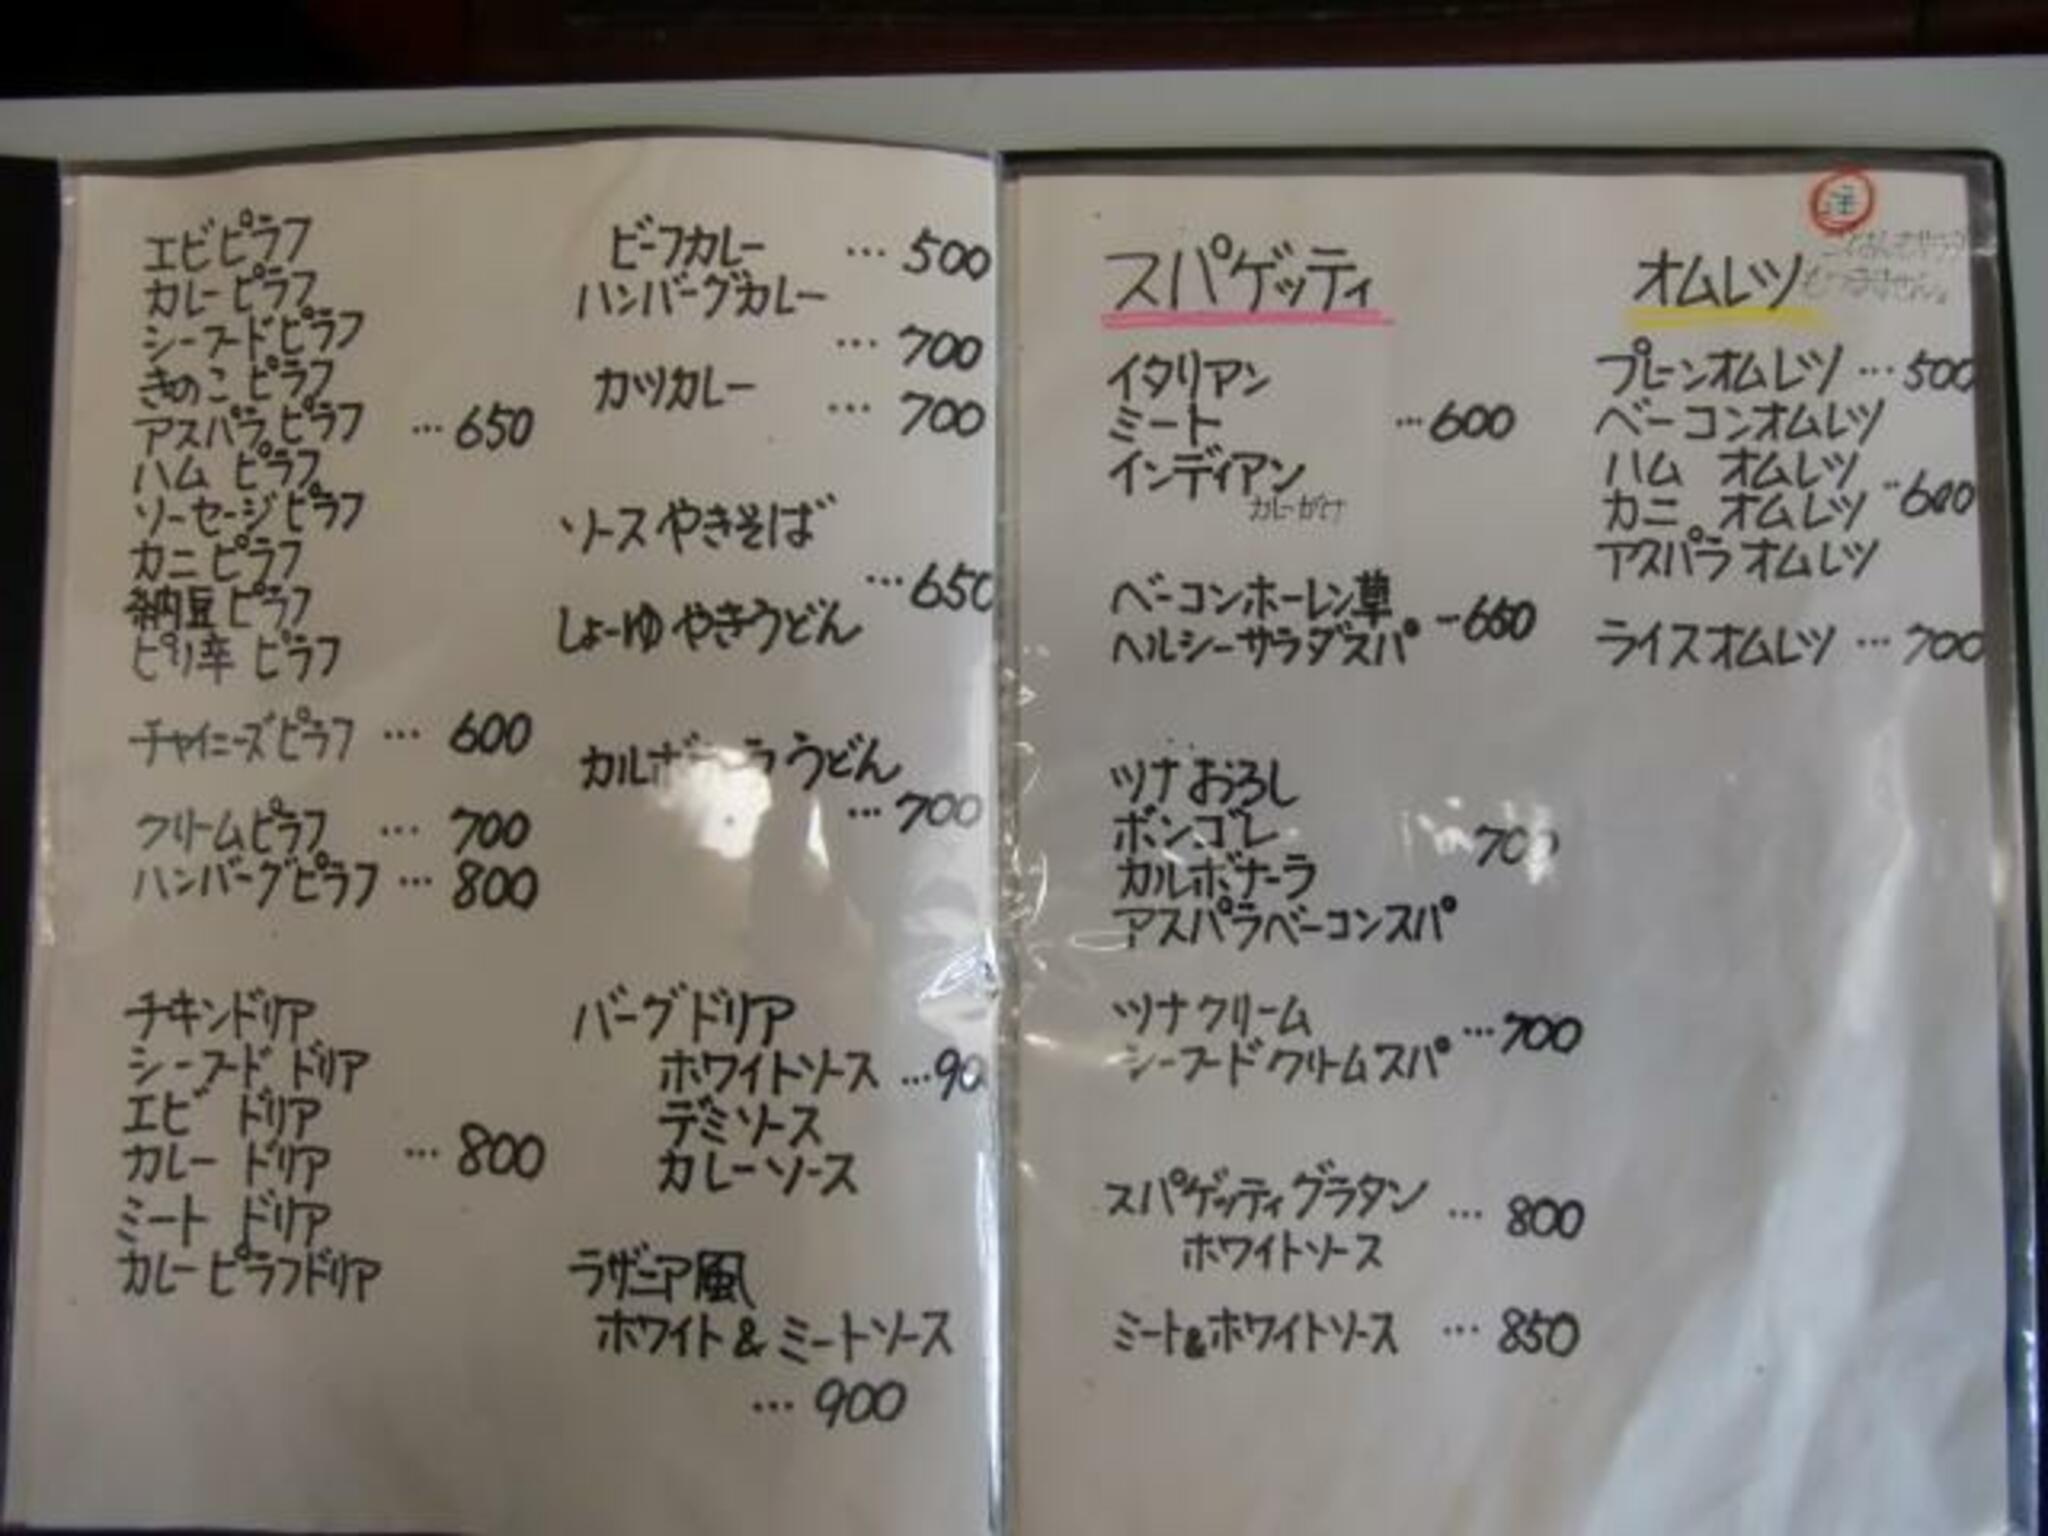 エビピラフ
カレーピラフ
シーフードピラフ
きのこ ピラフ
アスパラピラフ … 650
ハム ピラフ
ソーセージピラフ
カニ ピラフ
納豆 ピラフ
ピリ辛 ピラフ
チャイニーズピラフ … 600
クリームピラフ … 700
ハンバーグピラフ … 800
チキンドリア
シーフード ドリア
エビ ドリア
カレー ドリア … 800
ミート ドリア
カレーピラフドリア
ビーフカレー … 500
ハンバーグカレー
… 700
カツカレー
… 700
ソースやきそば
… 650
しょーゆ やきうどん
カルボナーラ うどん
… 700
バーグドリア
ホワイトソース … 90
デミソース
カレーソース
ラザニア風
ホワイト & ミートソース
… 900
スパゲッティ
イタリアン
ミート … 600
インディアン
カレーがけ
ベーコンホーレン草
ヘルシーサラダスパ … 650
ツナおろし
ボンゴレ 700
カルボナーラ
アスパラベーコンスパ
ツナクリーム … 700
シーフードクリームスパ
スパゲッティグラタン … 800
ホワイトソース
ミート&ホワイトソース … 850
注
オムレツ
プレーンオムレツ … 500
ベーコンオムレツ
ハム オムレツ … 600
カニ オムレツ
アスパラ オムレツ
ライスオムレツ … 700